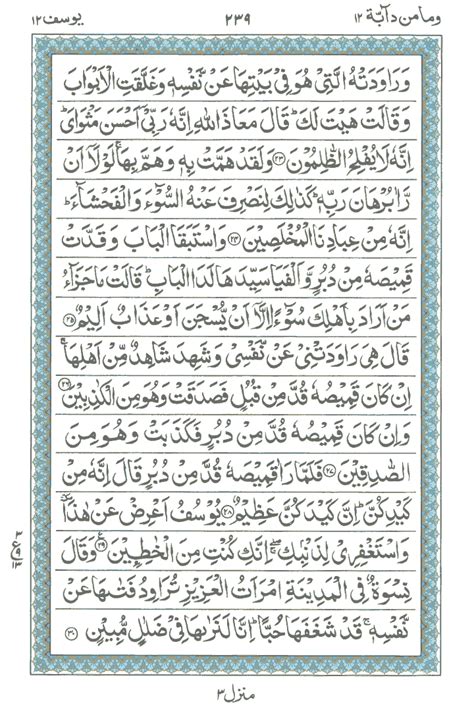 وما من دآبة ١٢
٢٣٩
يوسف ١٢
وَرَاوَدَتْهُ الَّتِیْ هُوَ فِیْ بَیْتِهَا عَنْ نَّفْسِهٖ وَغَلَّقَتِ الْاَبْوَابَ
وَقَالَتْ هَیْتَ لَكَ ؕ قَالَ مَعَاذَ اللّٰهِ اِنَّهٗ رَبِّیْۤ اَحْسَنَ مَثْوَایَ ؕ
اِنَّهٗ لَا یُفْلِحُ الظّٰلِمُوْنَ ۝۲۳ وَلَقَدْ هَمَّتْ بِهٖ ۚ وَهَمَّ بِهَا ۚ لَوْلَاۤ اَنْ
رَّاٰ بُرْهَانَ رَبِّهٖ ؕ كَذٰلِكَ لِنَصْرِفَ عَنْهُ السُّوْٓءَ وَالْفَحْشَآءَ ؕ
اِنَّهٗ مِنْ عِبَادِنَا الْمُخْلَصِیْنَ ۝۲۴ وَاسْتَبَقَا الْبَابَ وَقَدَّتْ
قَمِیْصَهٗ مِنْ دُبُرٍ وَّاَلْفَیَا سَیِّدَهَا لَدَا الْبَابِ ؕ قَالَتْ مَا جَزَآءُ
مَنْ اَرَادَ بِاَهْلِكَ سُوْٓءًا اِلَّاۤ اَنْ یُّسْجَنَ اَوْ عَذَابٌ اَلِیْمٌ ۝۲۵
قَالَ هِیَ رَاوَدَتْنِیْ عَنْ نَّفْسِیْ وَشَهِدَ شَاهِدٌ مِّنْ اَهْلِهَا ۚ
اِنْ كَانَ قَمِیْصُهٗ قُدَّ مِنْ قُبُلٍ فَصَدَقَتْ وَهُوَ مِنَ الْكٰذِبِیْنَ ۝۲۶
وَاِنْ كَانَ قَمِیْصُهٗ قُدَّ مِنْ دُبُرٍ فَكَذَبَتْ وَهُوَ مِنَ
الصّٰدِقِیْنَ ۝۲۷ فَلَمَّا رَاٰ قَمِیْصَهٗ قُدَّ مِنْ دُبُرٍ قَالَ اِنَّهٗ مِنْ
كَیْدِكُنَّ ؕ اِنَّ كَیْدَكُنَّ عَظِیْمٌ ۝۲۸ یُوْسُفُ اَعْرِضْ عَنْ هٰذَا ٚ
وَاسْتَغْفِرِیْ لِذَنْۢبِكِ ۖۚ اِنَّكِ كُنْتِ مِنَ الْخٰطِـِٕیْنَ ۝۲۹ وَقَالَ
نِسْوَةٌ فِی الْمَدِیْنَةِ امْرَاَتُ الْعَزِیْزِ تُرَاوِدُ فَتٰىهَا عَنْ
نَّفْسِهٖ ۚ قَدْ شَغَفَهَا حُبًّا ؕ اِنَّا لَنَرٰىهَا فِیْ ضَلٰلٍ مُّبِیْنٍ ۝۳۰
منزل ٣